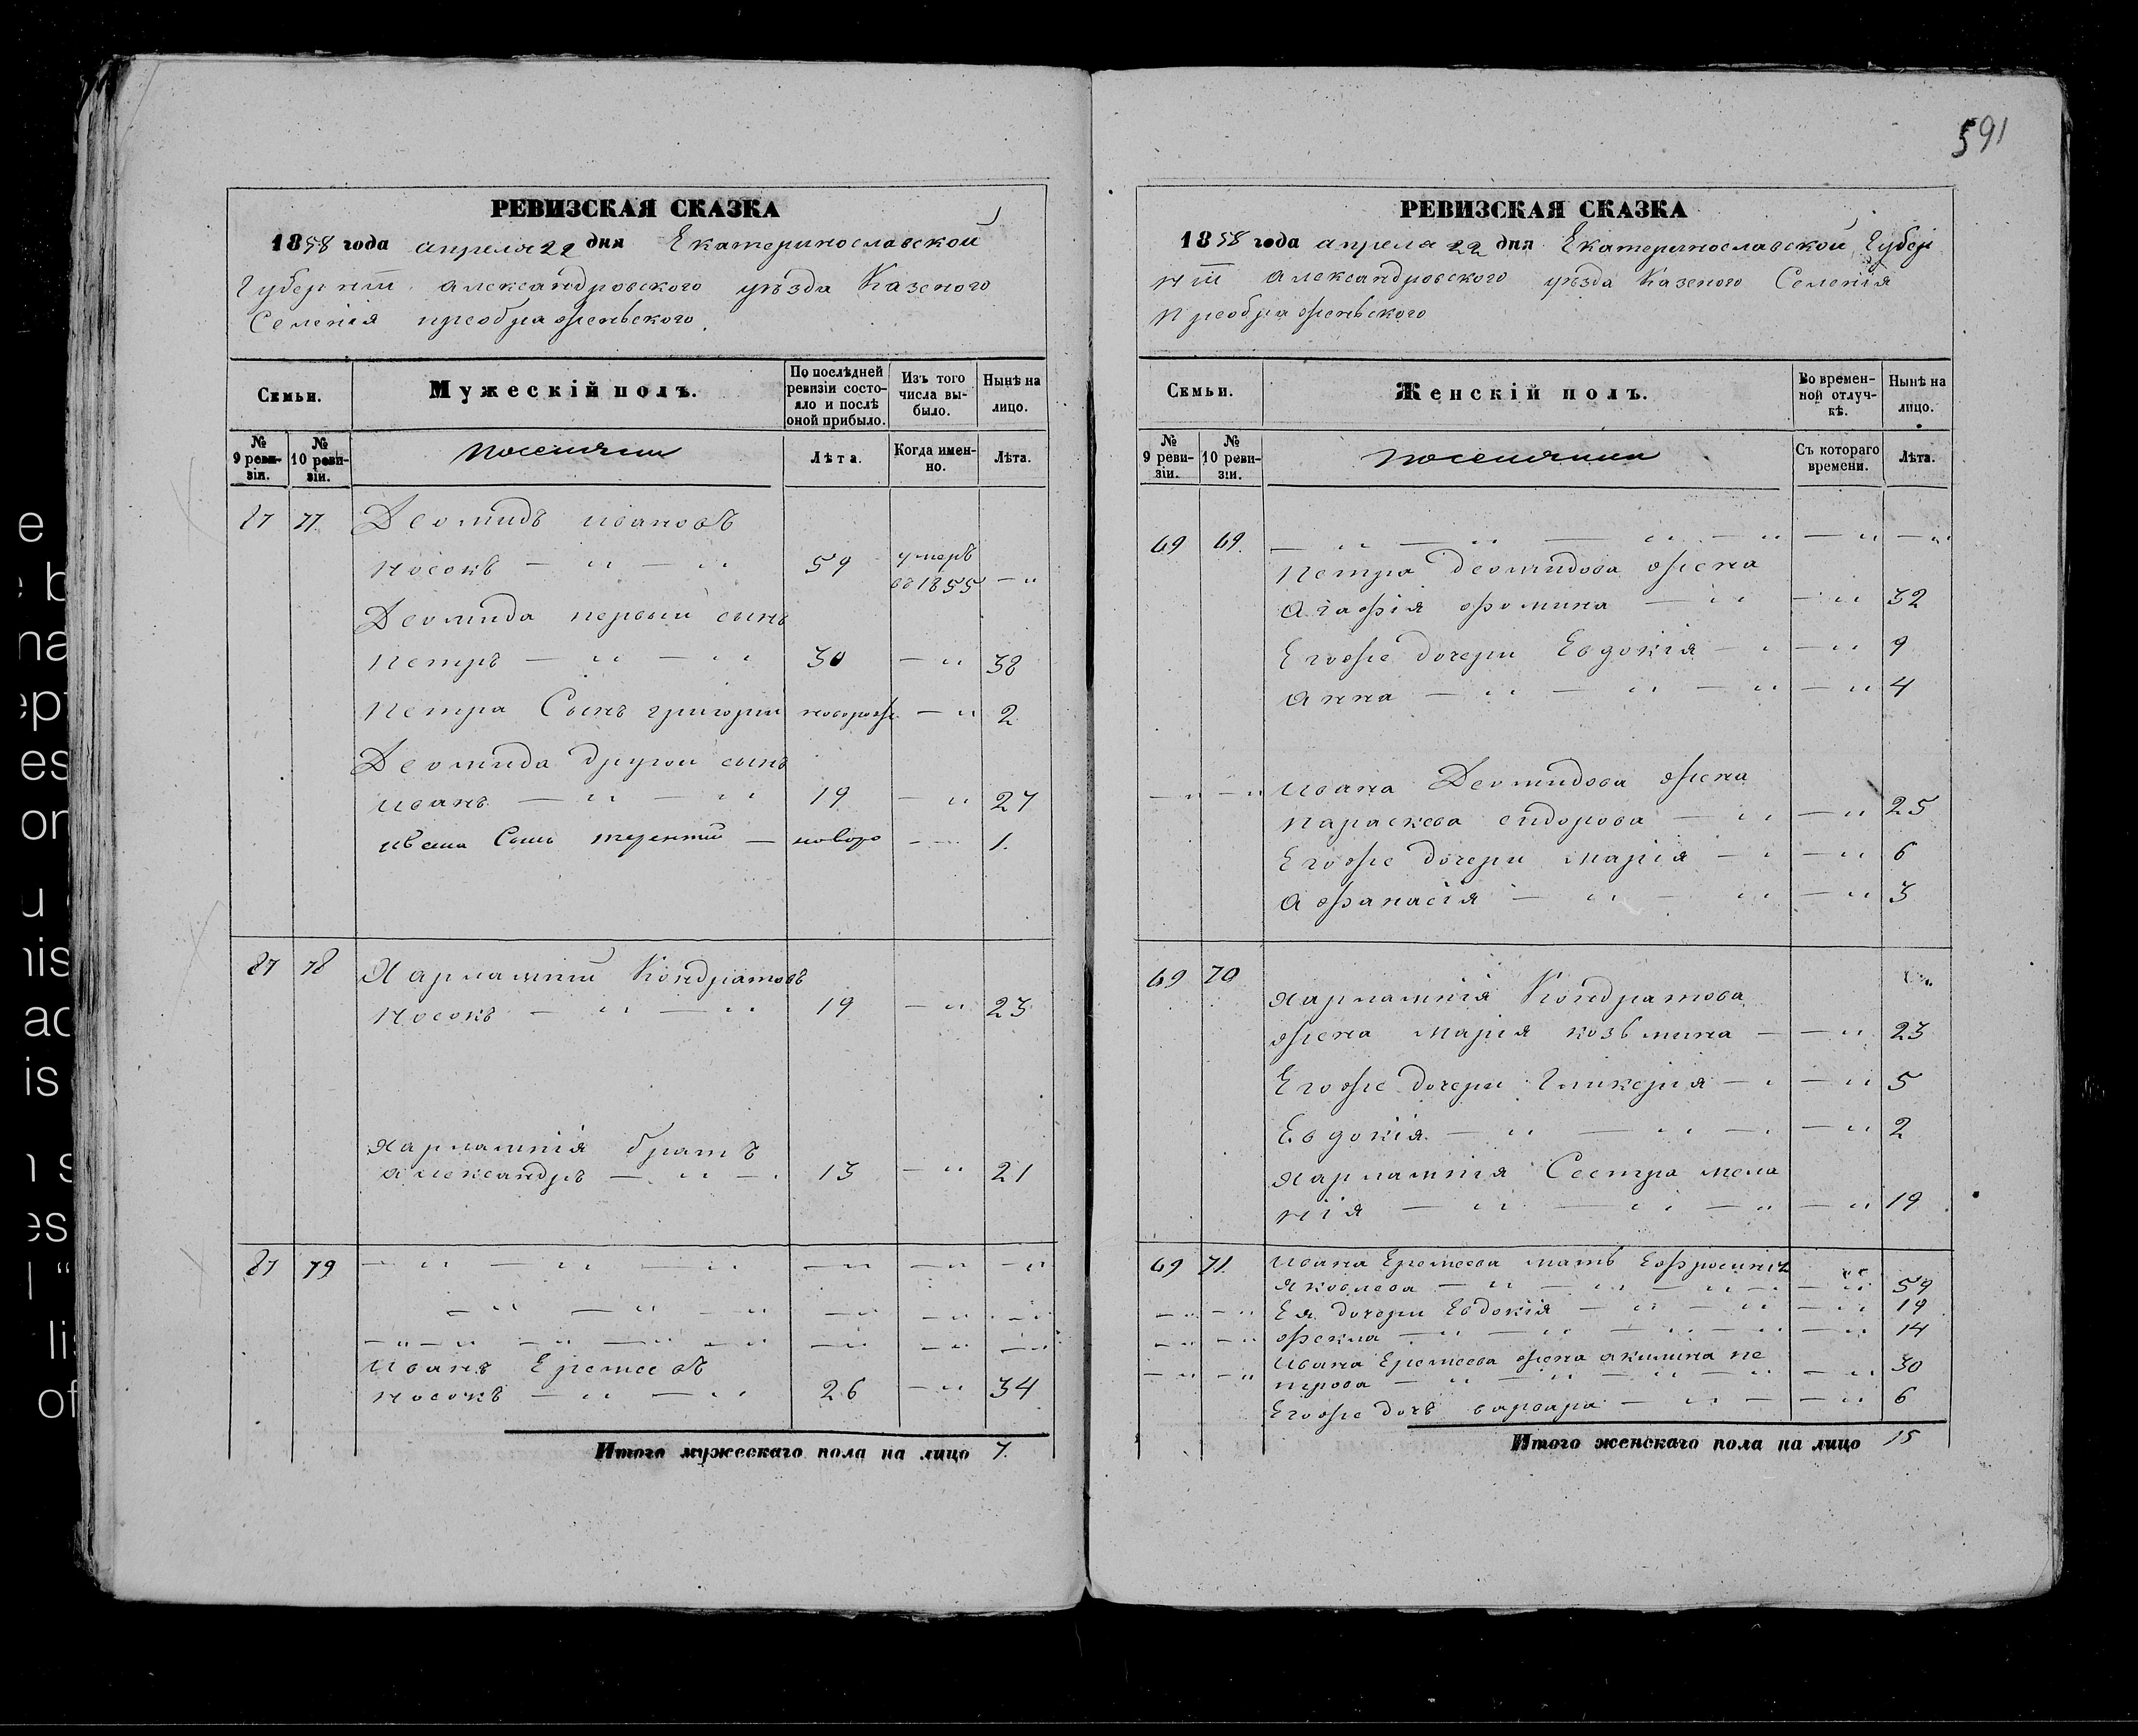 591
РЕВИЗСКАЯ СКАЗКА
1858 года апреля 22 дня Екатеринославской
Губернiи александровского уезда Казеного
Селенiя преображенвского
Семьи.
Мужескiй полъ.
По послѣдней ревизiи состояло и послѣ оной прибыло.
Изъ того числа выбыло.
Нынѣ на лицо.
№ 9 ревизiи.
№ 10 ревизiи.
поселяни
Лѣта.
Когда именно.
Лѣта.
87 77 Деомидъ ивановъ
носокъ — " — " 59 умеръ въ 1855 — "
Деомида первыи сынъ
Петръ — " — " 30 — " 38
Петра Сынъ григории новорож — " 2
Деомида другои сынъ
иванъ — " — " 19 — " 27
ивана Сынъ терентий — новоро — 1.
87 78 Харлампий Кондратовъ
носокъ — " — " 19 — " 23
Харлампiя братъ
александръ — " — 13 — " 21
87 79 — " — " — " — " — " — "
— " — " — " — " — " — "
— " — " — " — " — " — " — " — "
иванъ Еремеевъ
носокъ — " — " 26 — " 34
Итого мужескаго пола на лицо 7.
РЕВИЗСКАЯ СКАЗКА
1858 года апрела 22 дня Екатеринославской Губер
нiи александровского уезда Казеного Селенiя
Преображенвского
Семьи.
Женскiй полъ.
Во временной отлучкѣ.
Нынѣ на лицо.
№ 9 ревизiи.
№ 10 ревизiи.
поселянки
Съ котораго времени.
Лѣта.
69 69. — " — " — " — " — " — "
Петра деомидова жена
агафiя фомина — " — " 32
Егоже дочери Евдокiя — " — " 9
анна — " — " — " — " 4
— " — " ивана Деомидова жена
параскева сидорова — " — " 25
Егоже дочери марiя — " — " 6
афанасiя — " — " — " 3
69 70 харлампiя Кондратова
жена марiя козьмина — — " 23
Егоже дочери Гликерiя — " — " 5
Евдокiя — " — " — — " 2
харлампiя Сестра мела
нiя — " — " — " — " 19
69 71. ивана Еремеева мать Ефросинiя
яковлева — " — " — " — — " 59
— " — " Ея дочери Евдокiя — " — " — " 19
— " — " фекла — " — " — " — " — " 14
— " — " ивана Еремеева жена акилина пе
трова — " — " — " — " — " 30
Егоже дочь варвара — " — — " 6
Итого женскаго пола на лицо 15